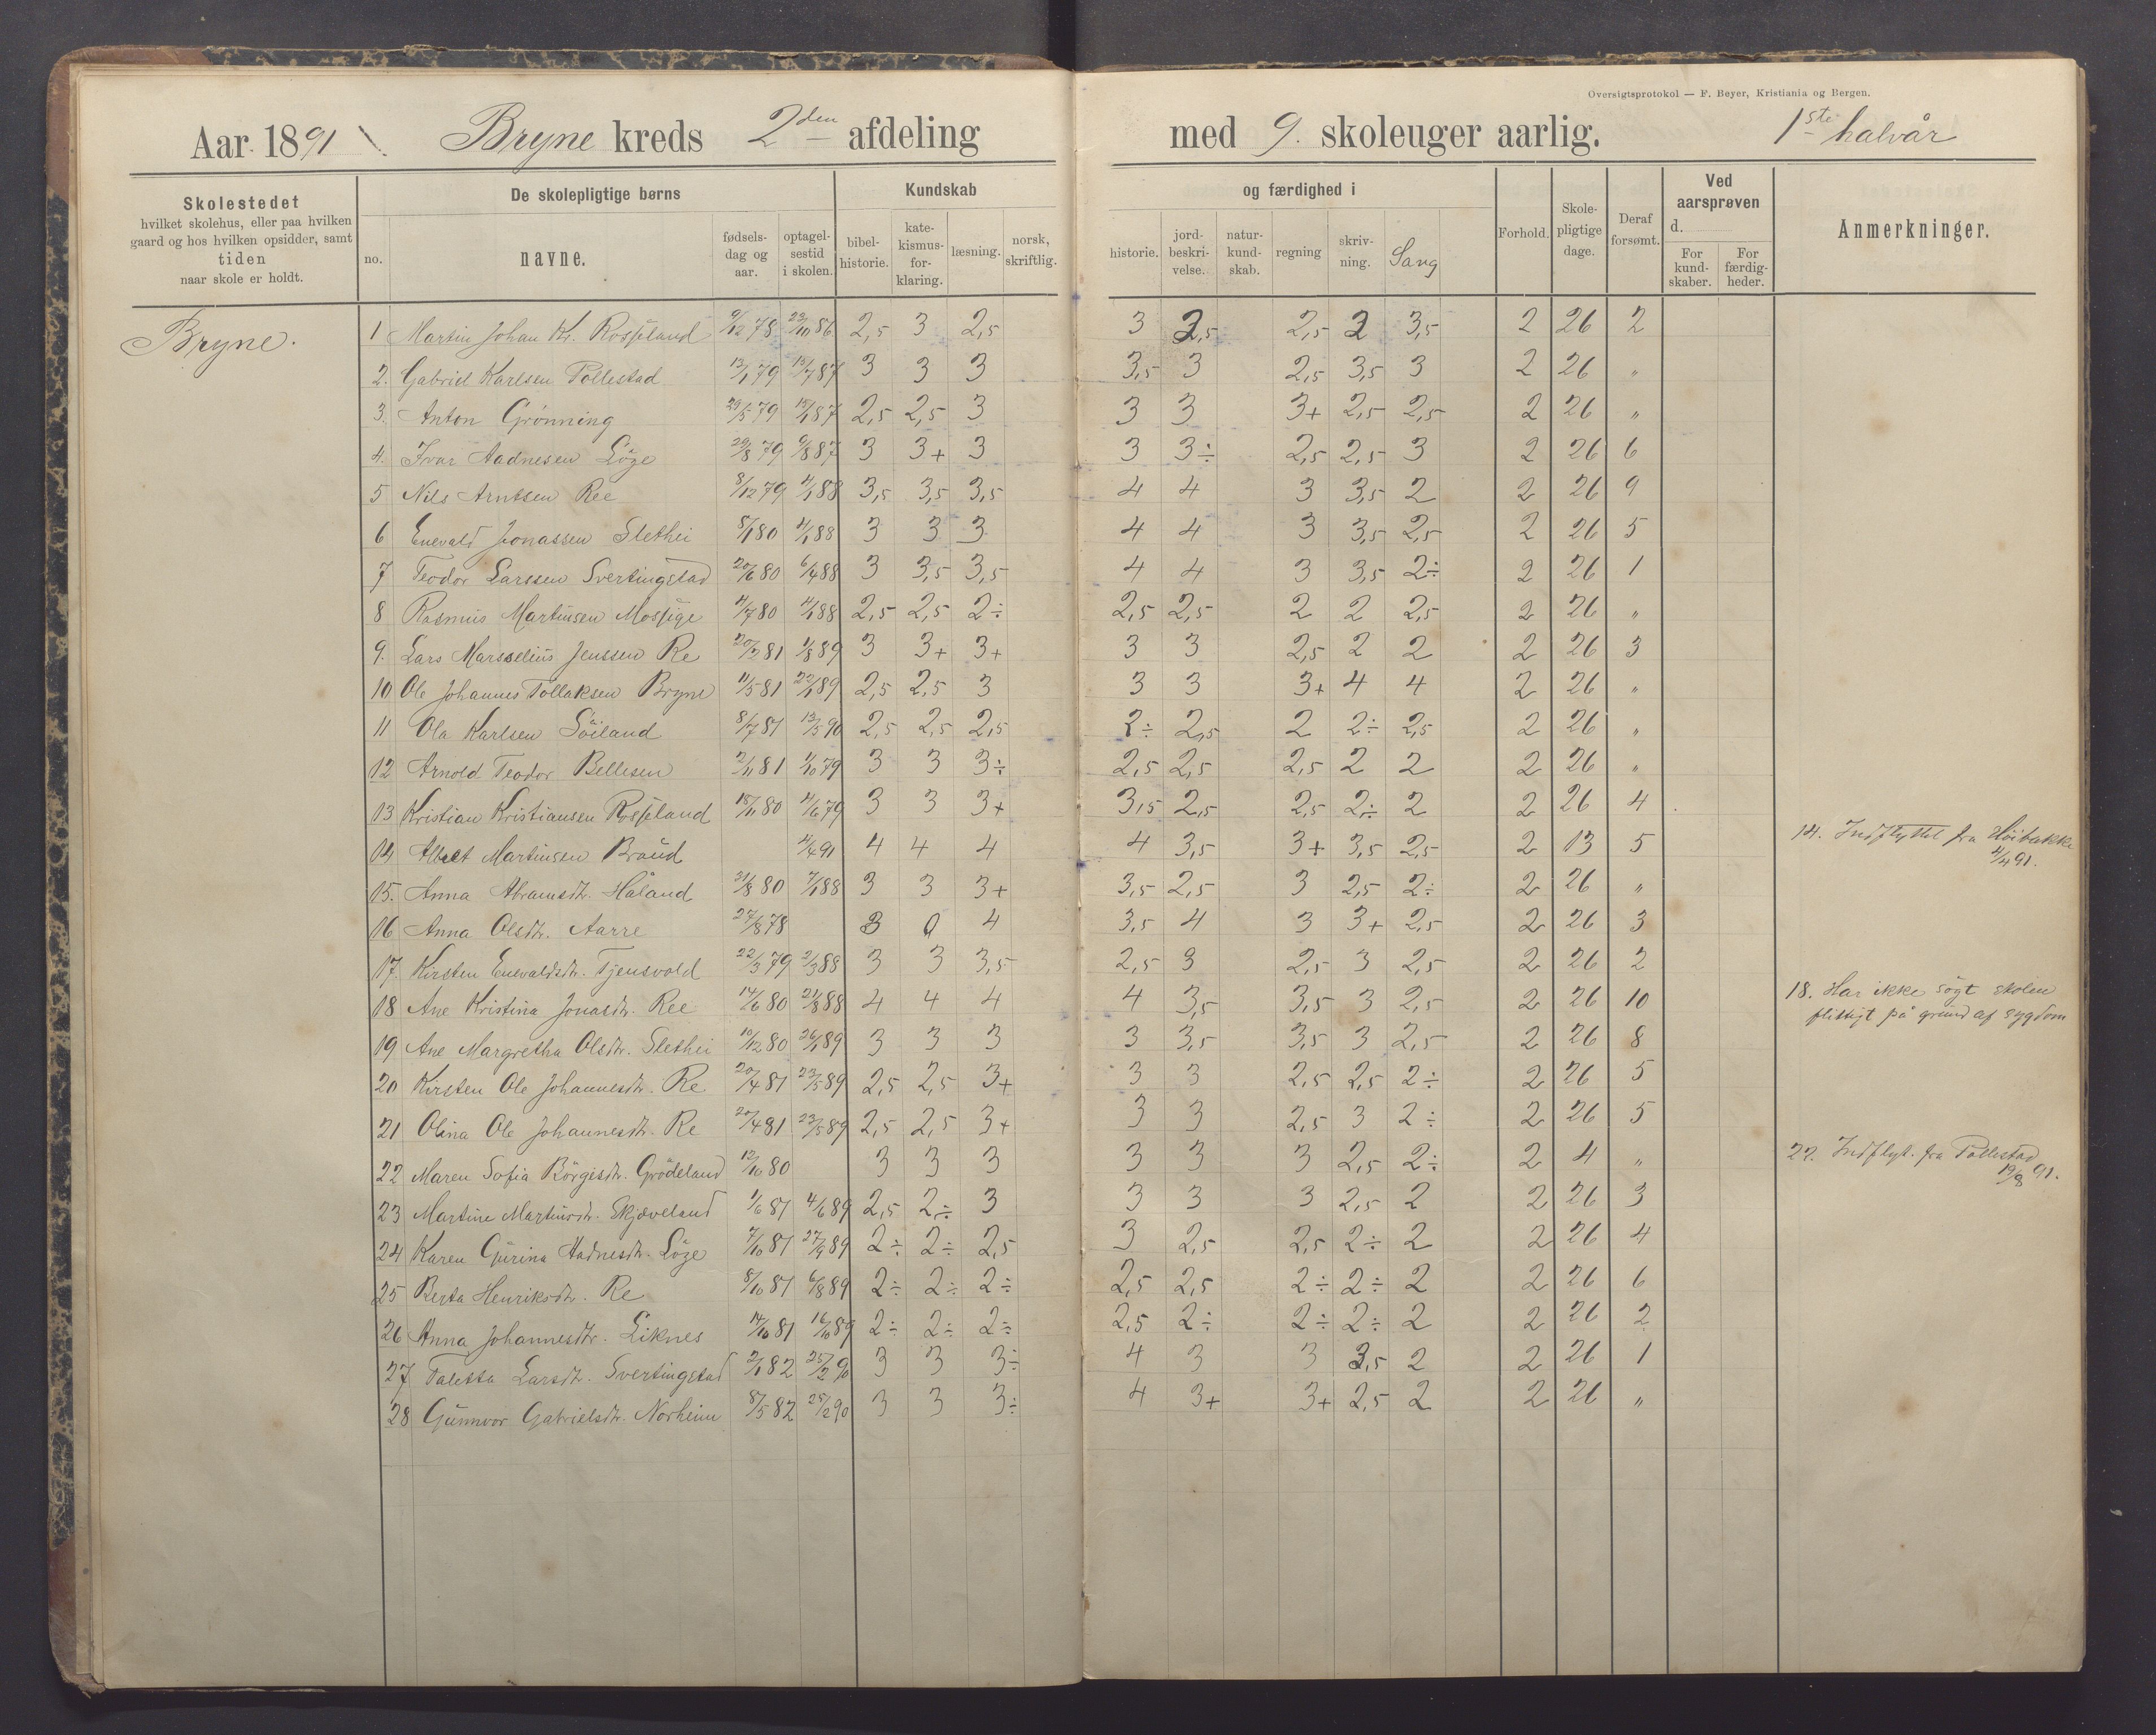 Oversigtsprotokol — F. Beyer, Kristiania og Bergen.
Aar 1891 Bryne kreds 2den afdeling med 9. skoleuger aarlig. 1ste halvår
Skolestedet hvilket skolehus, eller paa hvilken gaard og hos hvilken opsidder, samt tiden naar skole er holdt.
De skolepligtige børns
no. navne. fødsels-dag og aar. optagel-sestid i skolen.
Kundskab og færdighed i
bibel-historie. kate-kismus-for-klaring. læsning. norsk, skriftlig. historie. jord-beskri-velse. natur-kund-skab. regning skriv-ning. Sang
Forhold. Skole-pligtige dage. Deraf forsømt.
Ved aarsprøven d. For kund-skaber. For færdig-heder.
Anmerkninger.
Bryne.
1 Martin Johan Kr. Rosseland 9/12 78 23/10 86 2,5 3 2,5 3 2,5 2,5 2 3,5 2 26 2
2. Gabriel Karlsen Pollestad 13/1 79 13/7 87 3 3 3 3,5 3 2,5 3,5 3 2 26 "
3. Anton Grönning 29/5 79 15/1 87 2,5 2,5 3 3 3 3+ 2,5 2,5 2 26 "
4. Ivar Aadnesen Löge 29/8 79 9/8 87 3 3+ 3 3 3÷ 2,5 2,5 3 2 26 6
5 Nils Arntsen Ree 8/12 79 4/1 88 3,5 3,5 3,5 4 4 3 3,5 2 2 26 9
6 Enevald Jonassen Slethei 5/1 80 4/1 88 3 3 3 4 4 3 3,5 2,5 2 26 5
7 Teodor Larssen Svertingstad 20/6 80 6/4 88 3 3,5 3,5 4 4 3 3,5 2÷ 2 26 1
8 Rasmus Martinsen Mossige 4/7 80 4/1 88 2,5 2,5 2÷ 2,5 2,5 2 2 2,5 2 26 "
9. Lars Marsselius Jenssen Re 20/2 81 1/8 89 3 3+ 3+ 3 3 2,5 2 2 2 26 3
10 Ole Johannes Tollaksen Bryne 11/5 81 22/1 89 2,5 2,5 3 3 3 3+ 4 4 2 26 "
11 Ola Karlsen Söiland 8/7 81 13/5 90 2,5 2,5 2,5 2÷ 2,5 2 2÷ 2,5 2 26 "
12 Arnold Teodor Bellesen 2/11 81 1/10 79 3 3 3÷ 2,5 2,5 2,5 2 2 2 26 "
13 Kristian Kristiansen Rosseland 18/11 80 4/6 79 3 3 3+ 3,5 2,5 2,5 2÷ 2 2 26 4
14 Albert Martinsen Braud 4/4 91 4 4 4 4 3,5 3+ 3,5 2,5 2 13 5 14. Indflyttet fra Höibakke
4/4 91.
15. Anna Abramsdtr. Håland 31/8 80 7/1 88 3 3 3+ 3,5 2,5 3 2,5 2÷ 2 26 "
16 Anna Olsdtr. Aarre 27/8 78 3 0 4 3,5 4 3 3+ 2,5 2 26 3
17. Kirsten Enevaldsdtr. Tjensvold 22/3 79 2/3 88 3 3 3,5 2,5 3 2,5 3 2,5 2 26 2
18 Ane Kristina Jonasdtr. Ree 14/6 80 21/8 88 4 4 4 4 3,5 3,5 3 2,5 2 26 10 18. Har ikke sögt skolen
flittigt på grund af sygdom
19 Ane Margretha Olsdtr. Slethei 10/12 80 26/1 89 3 3 3 3 3,5 3,5 3 2,5 2 26 8
20 Kirsten Ole Johannesdtr. Re 20/4 81 23/5 89 2,5 2,5 3+ 3 3 2,5 2,5 2÷ 2 26 5
21 Olina Ole Johannesdtr. Re 20/4 81 23/5 89 2,5 2,5 3+ 3 3 2,5 3 2÷ 2 26 5
22 Maren Sofia Börgesdtr. Grödeland 12/10 80 3 3 3 3 3 3 2,5 2÷ 2 4 " 22. Indflyt. fra Pollestad
19/8 91.
23 Martine Martinsdtr. Skjæveland 1/6 81 4/6 89 2,5 2÷ 3 3 3 3 2,5 2 2 26 3
24 Karen Gurina Hadnesdtr. Löge 7/10 81 27/9 89 2÷ 2÷ 2,5 3 2,5 2,5 2÷ 2 2 26 4
25 Berta Henriksdtr. Re 8/10 81 6/8 89 2÷ 2÷ 2÷ 2,5 2,5 2÷ 2÷ 2 2 26 6
26 Anna Johannesdtr. Liknes 14/10 81 16/10 89 2÷ 2÷ 2÷ 2,5 2÷ 2÷ 2÷ 2 2 26 2
27 Taletta Larsdtr. Svertingstad 2/1 82 25/2 90 3 3 3÷ 4 3 3 3,5 2 2 26 1
28 Gunnvor Gabrielsdtr. Norheim 8/5 82 25/2 90 3 3 3÷ 4 3+ 3+ 2,5 2 2 26 "